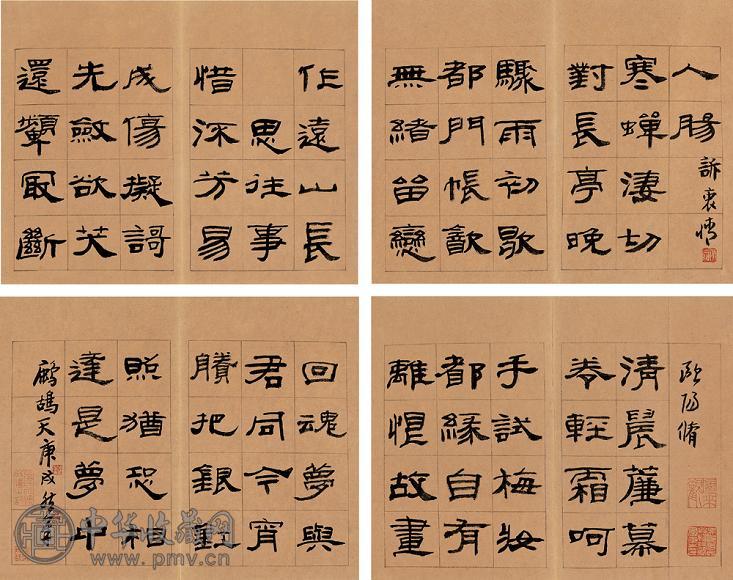 人腸 訴衷情
寒蟬淒切
對長亭晚
驟雨初歇
都門帳飲
無緒留戀
作遠山長
思往事
惜流芳易
成傷擬謌
先斂欲笑
還顰最斷
歐陽脩
清晨簾幕
卷輕霜呵
手試梅妝
都緣自有
離恨故畫
回魂夢與
君同今宵
賸把銀釭
照猶恐相
逢是夢中
鷓鴣天庚戌
中华收藏网
www.pmv.cn